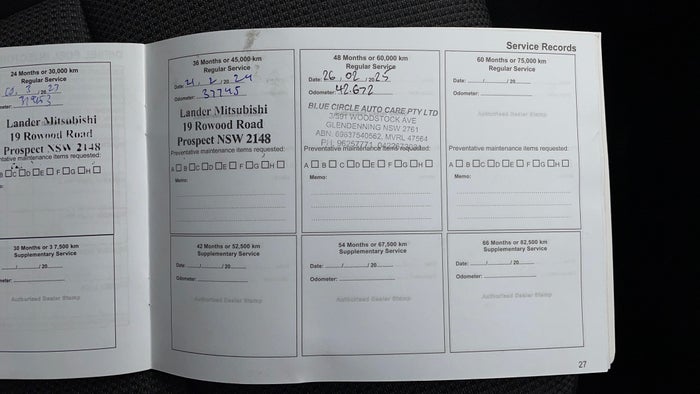 24 Months or 30,000 km
Regular Service
Lander Mitsubishi
19 Rowood Road
Prospect NSW 2148
maintenance items requested:
B C D E F G H
30 Months or 3 7,500 km
Supplementary Service
/ / 20
Authorised Dealer Stamp
Service Records
36 Months or 45,000 km
Regular Service
Date: 21, 2, 20 24
Odometer: 37745
Lander Mitsubishi
19 Rowood Road
Prospect NSW 2148
Preventative maintenance items requested:
A B C D E F G H
Memo:
48 Months or 60,000 km
Regular Service
Date: 26, 02, 20 25
Odometer: 42.672
BLUE CIRCLE AUTO CARE PTY LTD
3/591 WOODSTOCK AVE
GLENDENNING NSW 2761
ABN: 69637540562, MVRL 47564
Preventative maintenance items requested:
A B C D E F G H
Memo:
60 Months or 75,000 km
Regular Service
Date: / / 20
Odometer:
Authorised Dealer Stamp
Preventative maintenance items requested:
A B C D E F G H
Memo:
42 Months or 52,500 km
Supplementary Service
Date: / / 20
Odometer:
Authorised Dealer Stamp
54 Months or 67,500 km
Supplementary Service
Date: / / 20
Odometer:
Authorised Dealer Stamp
66 Months or 82,500 km
Supplementary Service
Date: / / 20
Odometer:
Authorised Dealer Stamp
27